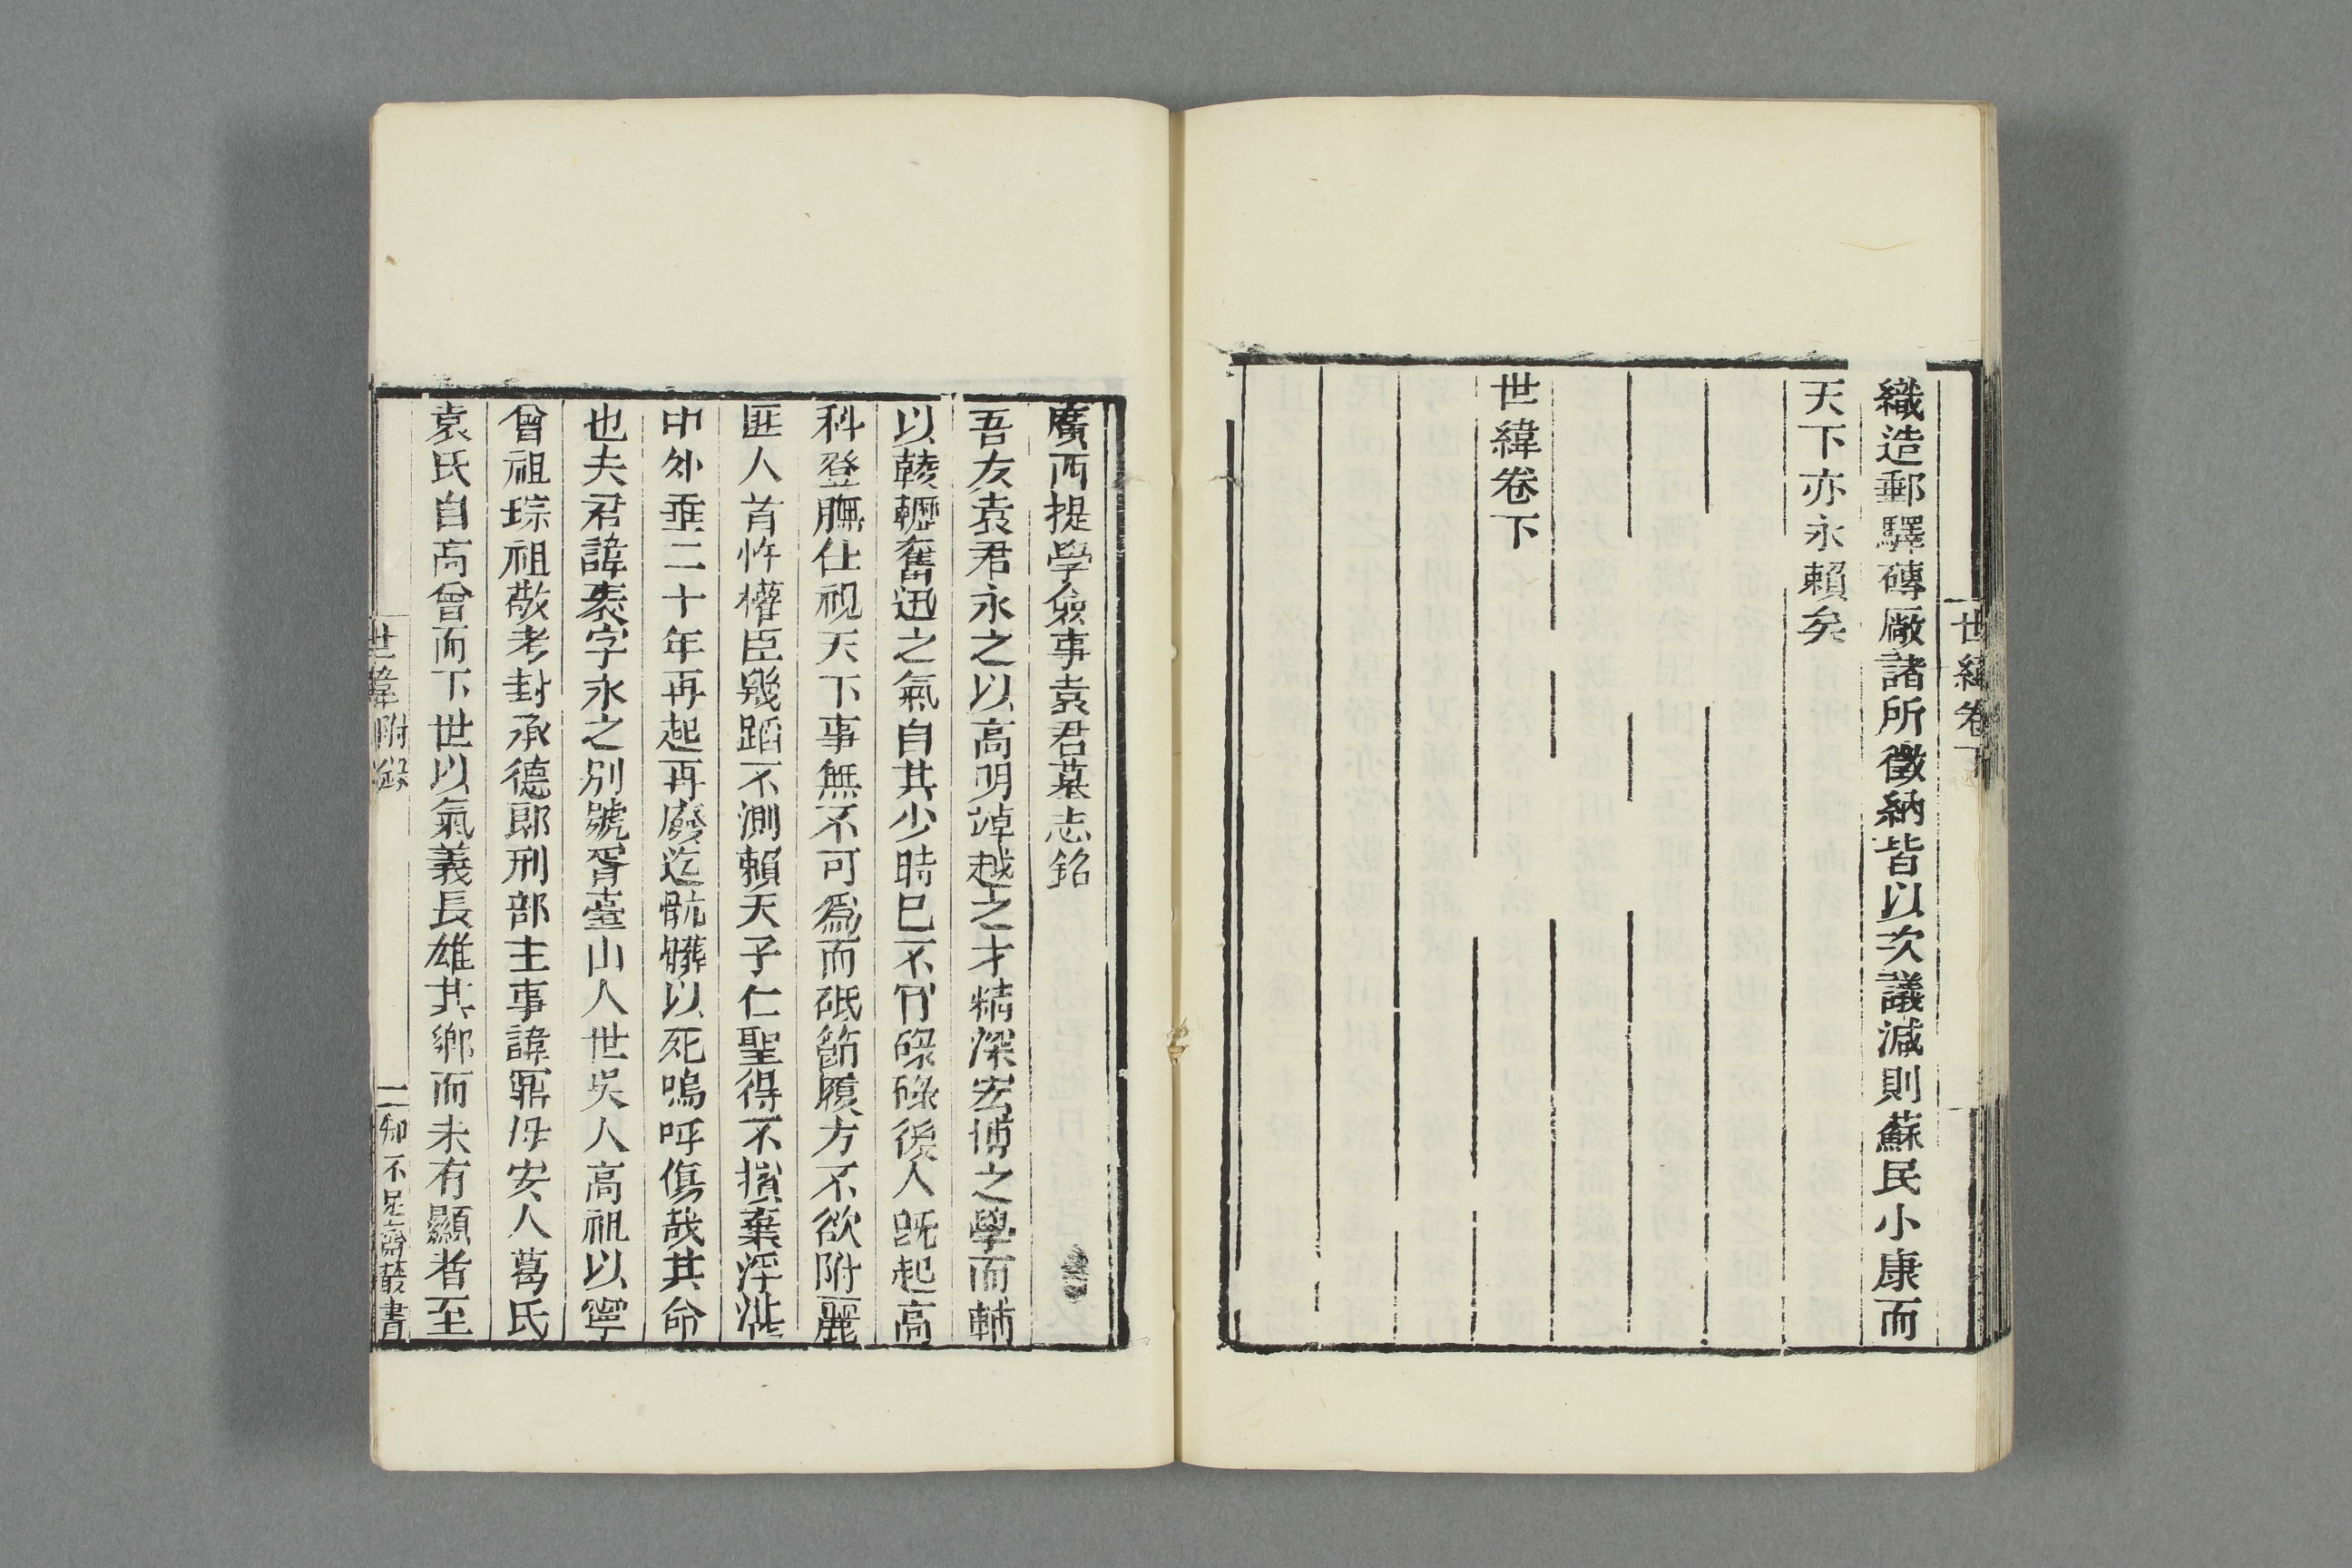 世緯卷下
織造郵驛磚厰諸所徵納皆以次議減則蘇民小康而
天下亦永賴矣
世緯卷下
廣西提學僉事袁君墓志銘
吾友袁君永之以高明踔越之才精深宏博之學而輔
以輘轣奮迅之氣自其少時已不肎碌碌後人既起高
科登膴仕視天下事無不可爲而砥節履方不欲附麗
匪人首忤權臣幾蹈不測賴天子仁聖得不擯棄浮湛
中外垂二十年再起再廢迄骯髒以死嗚呼傷哉其命
也夫君諱袠字永之别號胥臺山人世吳人高祖以寧
曾祖琮祖敬考封承德郎刑部主事諱鼏母安人葛氏
袁氏自高曾而下世以氣義長雄其鄉而未有顯者至
世緯附錄
一
知不足齋叢書